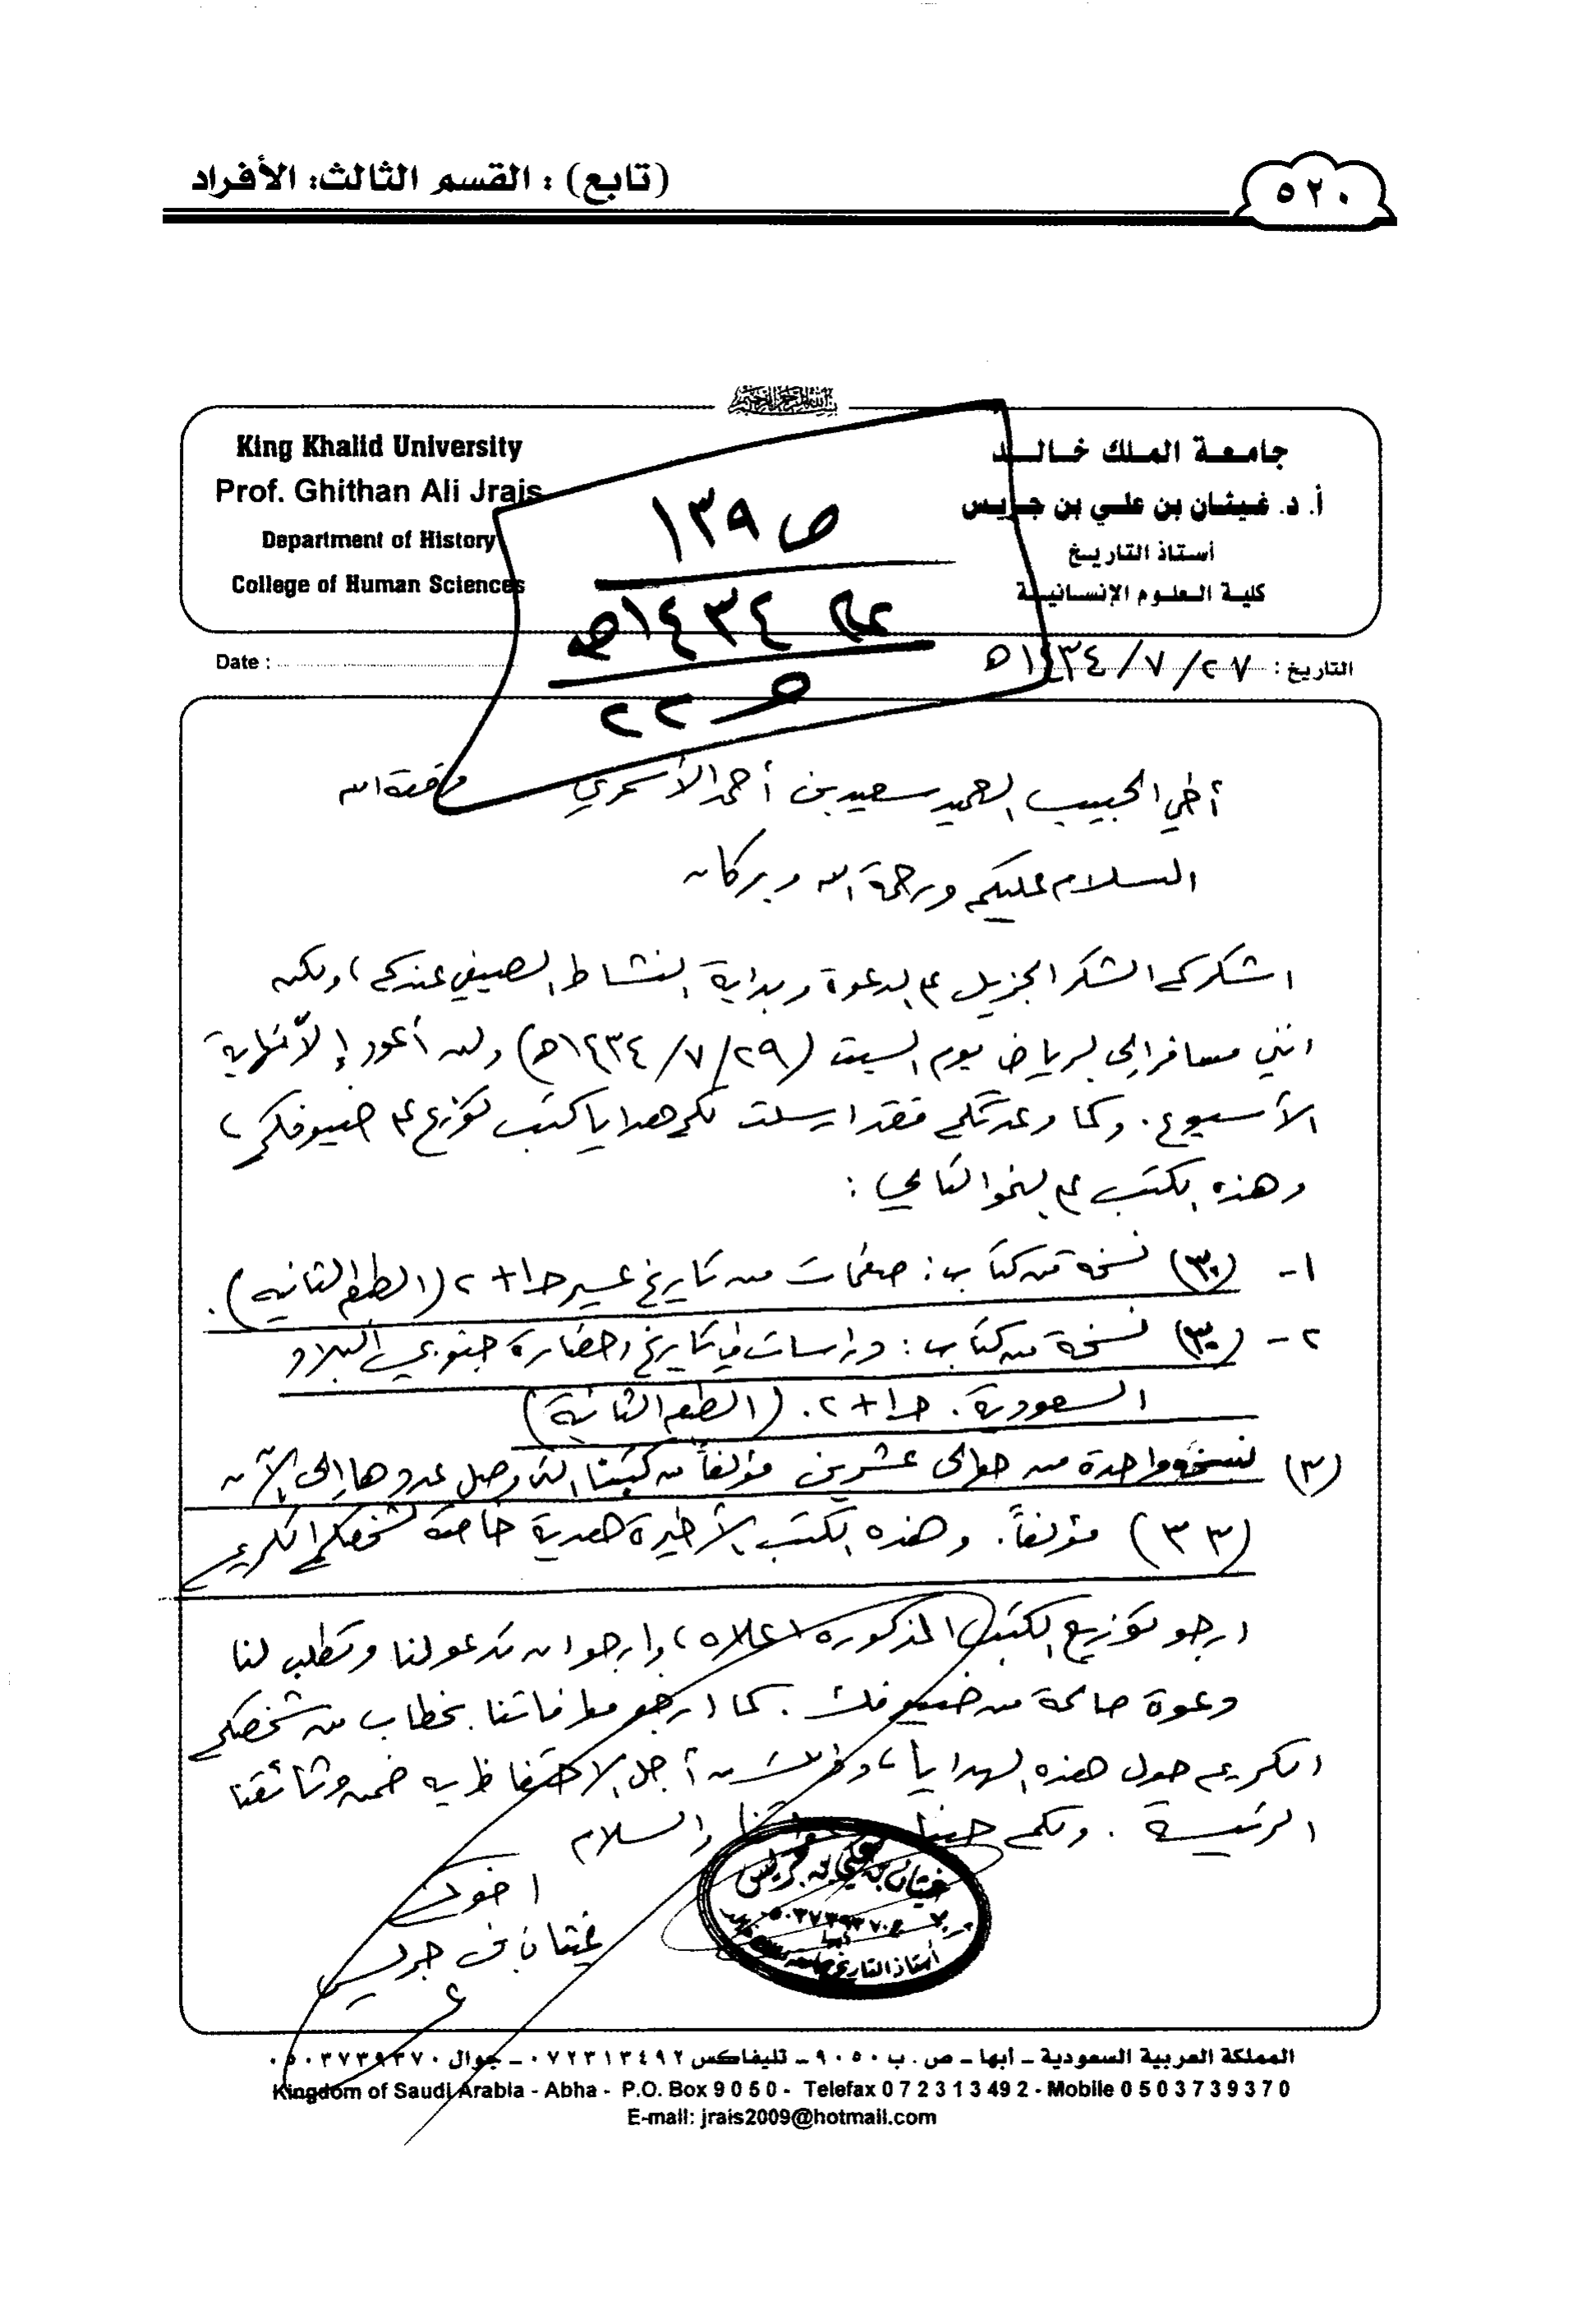 (تابع) : القسم الثالث: الأفراد
٥٢٠
King Khalid University
Prof. Ghithan Ali Jrais
Department of History
College of Human Sciences
جامعة الملك خالد
أ. د. غيثان بن علي بن جريس
أستاذ التاريخ
كلية العلوم الإنسانية
ص ١٣٩
١٤٣٤هـ
ص ٢٢
Date :
التاريخ : ٢٧ / ٧ / ١٤٣٤هـ
أخي الحبيب العميد سعيد بن أحمد الأسمري وفقه الله
السلام عليكم ورحمة الله وبركاته
اشكركم الشكر الجزيل على الدعوة وبداية النشاط الصيفي عندكم، ولكن
انني مسافر إلى الرياض يوم السبت (٢٩ / ٧ / ١٤٣٤هـ) ولن أعود إلا نهاية
الأسبوع. وكما وعدتكم فقد ارسلت لكم هدايا كتب توزع على ضيوفكم،
وهذه الكتب على النحو التالي :
١- (٣٠) نسخة من كتاب : صفحات من تاريخ عسير جـ١+٢ (الطبعة الثانية).
٢- (٣٠) نسخة من كتاب : دراسات في تاريخ وحضارة جنوبي البلاد
السعودية. جـ١+٢. (الطبعة الثانية)
(٣) نسخة واحدة من حوالي عشرين مؤلفاً من كتبنا التي وصل عددها إلى الآن
(٣٣) مؤلفاً. وهذه الكتب الأخيرة هدية خاصة لشخصكم الكريم
ارجو توزيع الكتب المذكورة اعلاه، وارجو ان تدعو لنا وتطلب لنا
دعوة صالحة من ضيوفك. كما ارجو موافاتنا بخطاب من شخصكم
الكريم حول هذه الهدايا، وذلك من أجل الاحتفاظ به ضمن وثائقنا
الرئيسة. ولكم والسلام
اخوك
غيثان بن جريس
غيثان بن علي بن جريس
أبها
أستاذ التاريخ
المملكة العربية السعودية ـ أبها ـ ص . ب ٩٠٥٠ ـ تليفاكس ٠٧٢٣١٣٤٩٢ ـ جوال ٠٥٠٣٧٣٩٣٧٠
Kingdom of Saudi Arabia - Abha - P.O. Box 9 0 5 0 - Telefax 0 7 2 3 1 3 49 2 - Mobile 0 5 0 3 7 3 9 3 7 0
E-mail: jrais2009@hotmail.com